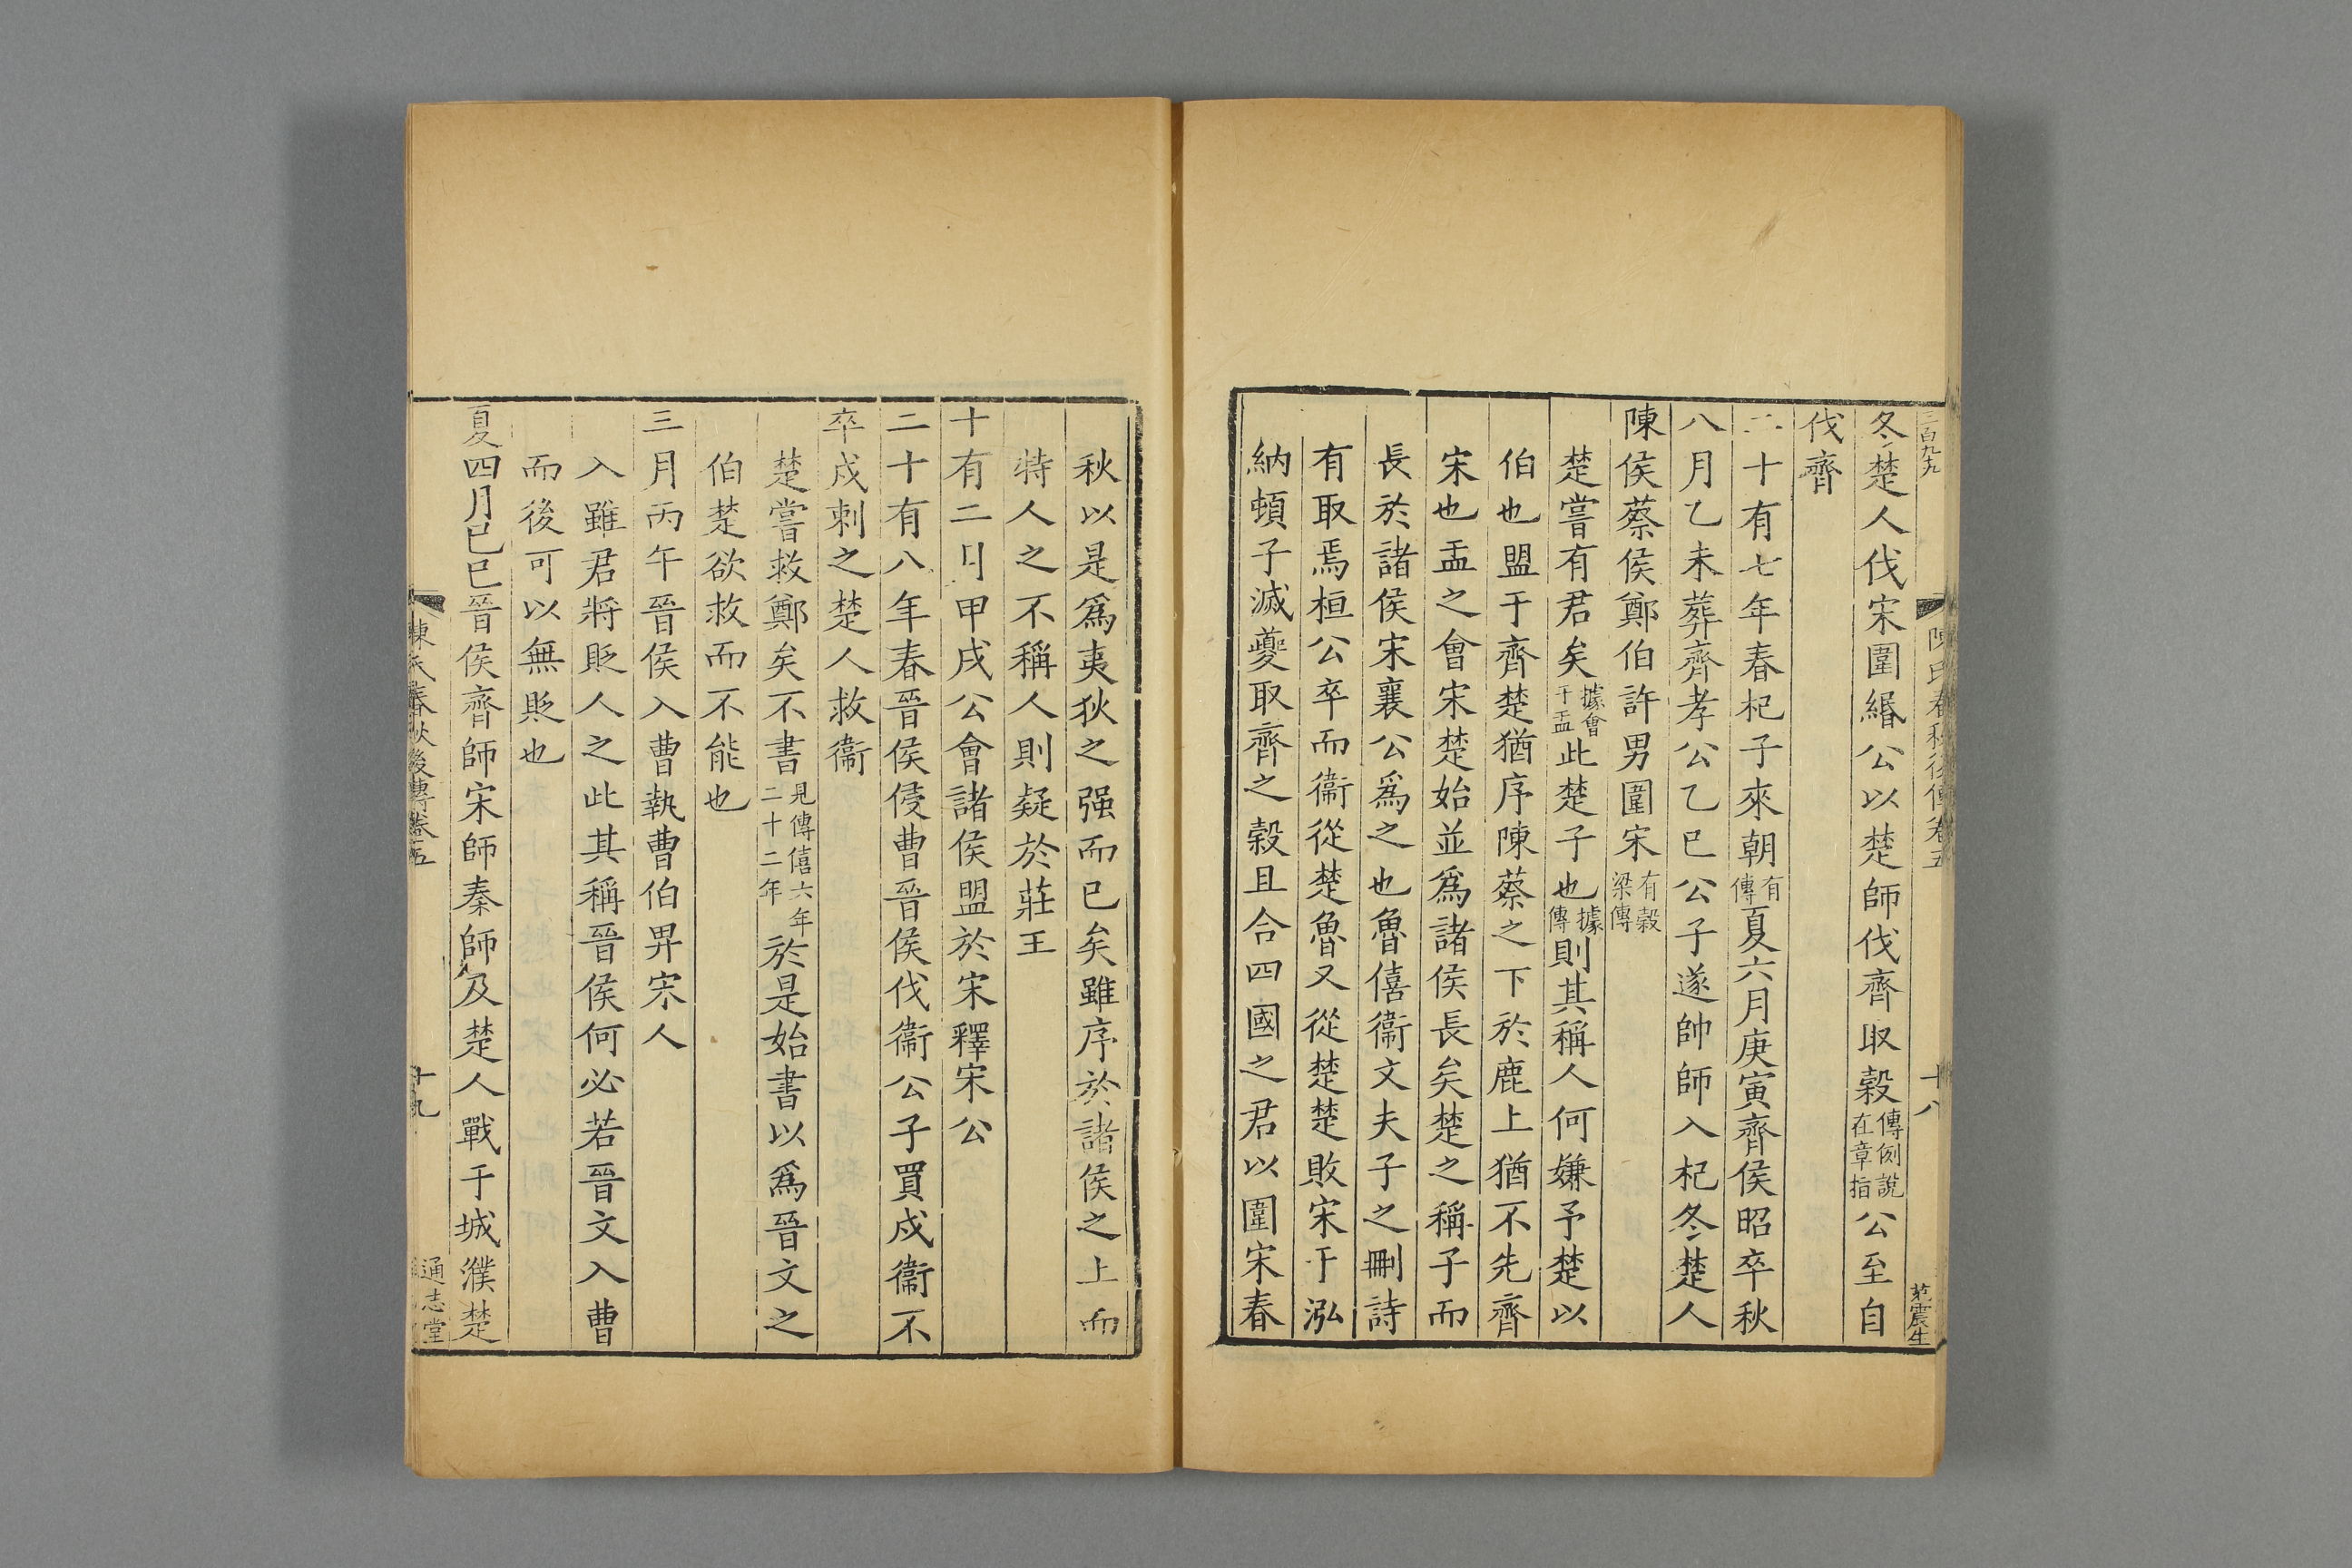 三百九十九
陳氏春秋後傳卷五
十八
范震生
冬楚人伐宋圍緡公以楚師伐齊取穀傳例說在章指公至自
伐齊
二十有七年春杞子來朝有傳夏六月庚寅齊侯昭卒秋
八月乙未葬齊孝公乙巳公子遂帥師入杞冬楚人
陳侯蔡侯鄭伯許男圍宋有穀梁傳
楚嘗有君矣據會于盂此楚子也據傳則其稱人何嫌予楚以
伯也盟于齊楚猶序陳蔡之下於鹿上猶不先齊
宋也盂之會宋楚始並爲諸侯長矣楚之稱子而
長於諸侯宋襄公爲之也魯僖衞文夫子之刪詩
有取焉桓公卒而衞從楚魯又從楚楚敗宋于泓
納頓子滅夔取齊之穀且合四國之君以圍宋春
秋以是爲夷狄之强而已矣雖序於諸侯之上而
特人之不稱人則疑於莊王
十有二月甲戌公會諸侯盟於宋釋宋公
二十有八年春晉侯侵曹晉侯伐衞公子買戍衞不
卒戍刺之楚人救衞
楚嘗救鄭矣不書見傳僖六年二十二年於是始書以爲晉文之
伯楚欲救而不能也
三月丙午晉侯入曹執曹伯畀宋人
入雖君將貶人之此其稱晉侯何必若晉文入曹
而後可以無貶也
夏四月己巳晉侯齊師宋師秦師及楚人戰于城濮楚
陳氏春秋後傳卷五
十九
通志堂